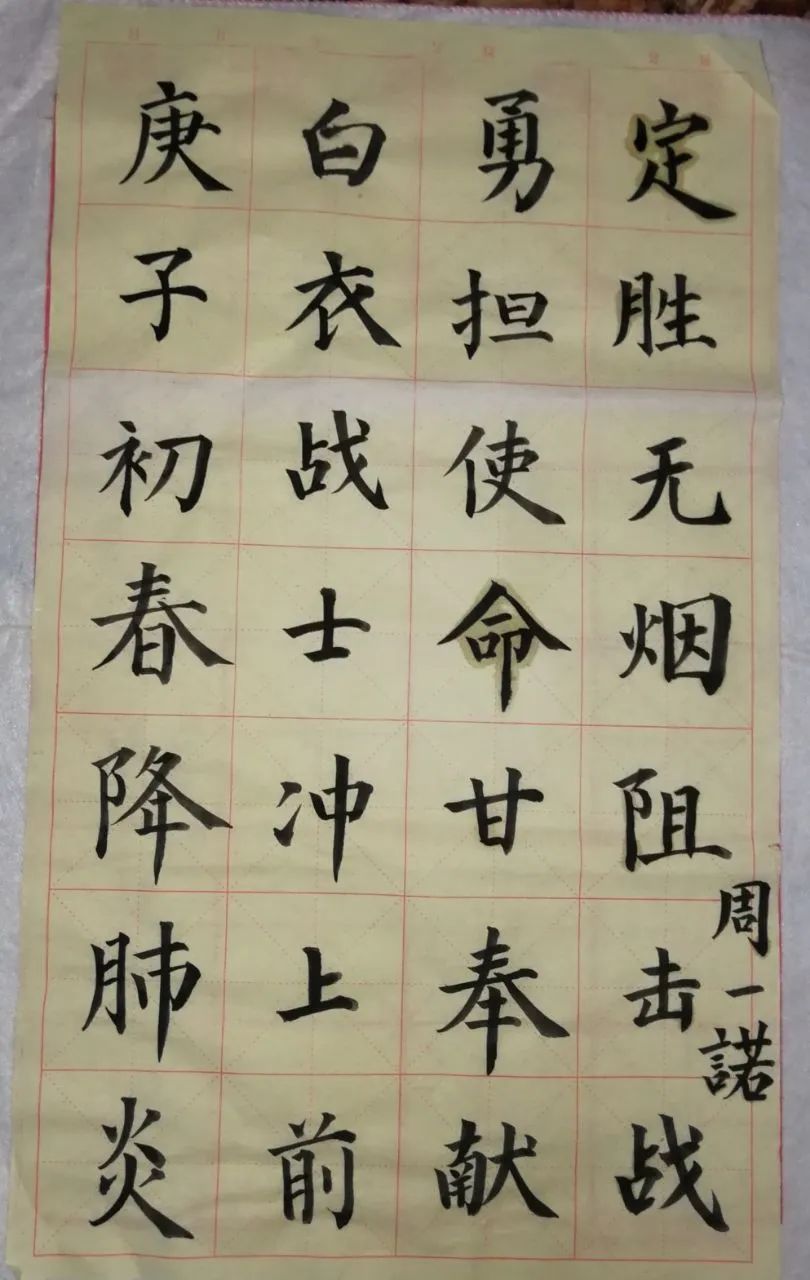 庚子初春降肺炎
白衣战士冲上前
勇担使命甘奉献
定胜无烟阻击战
周一諾